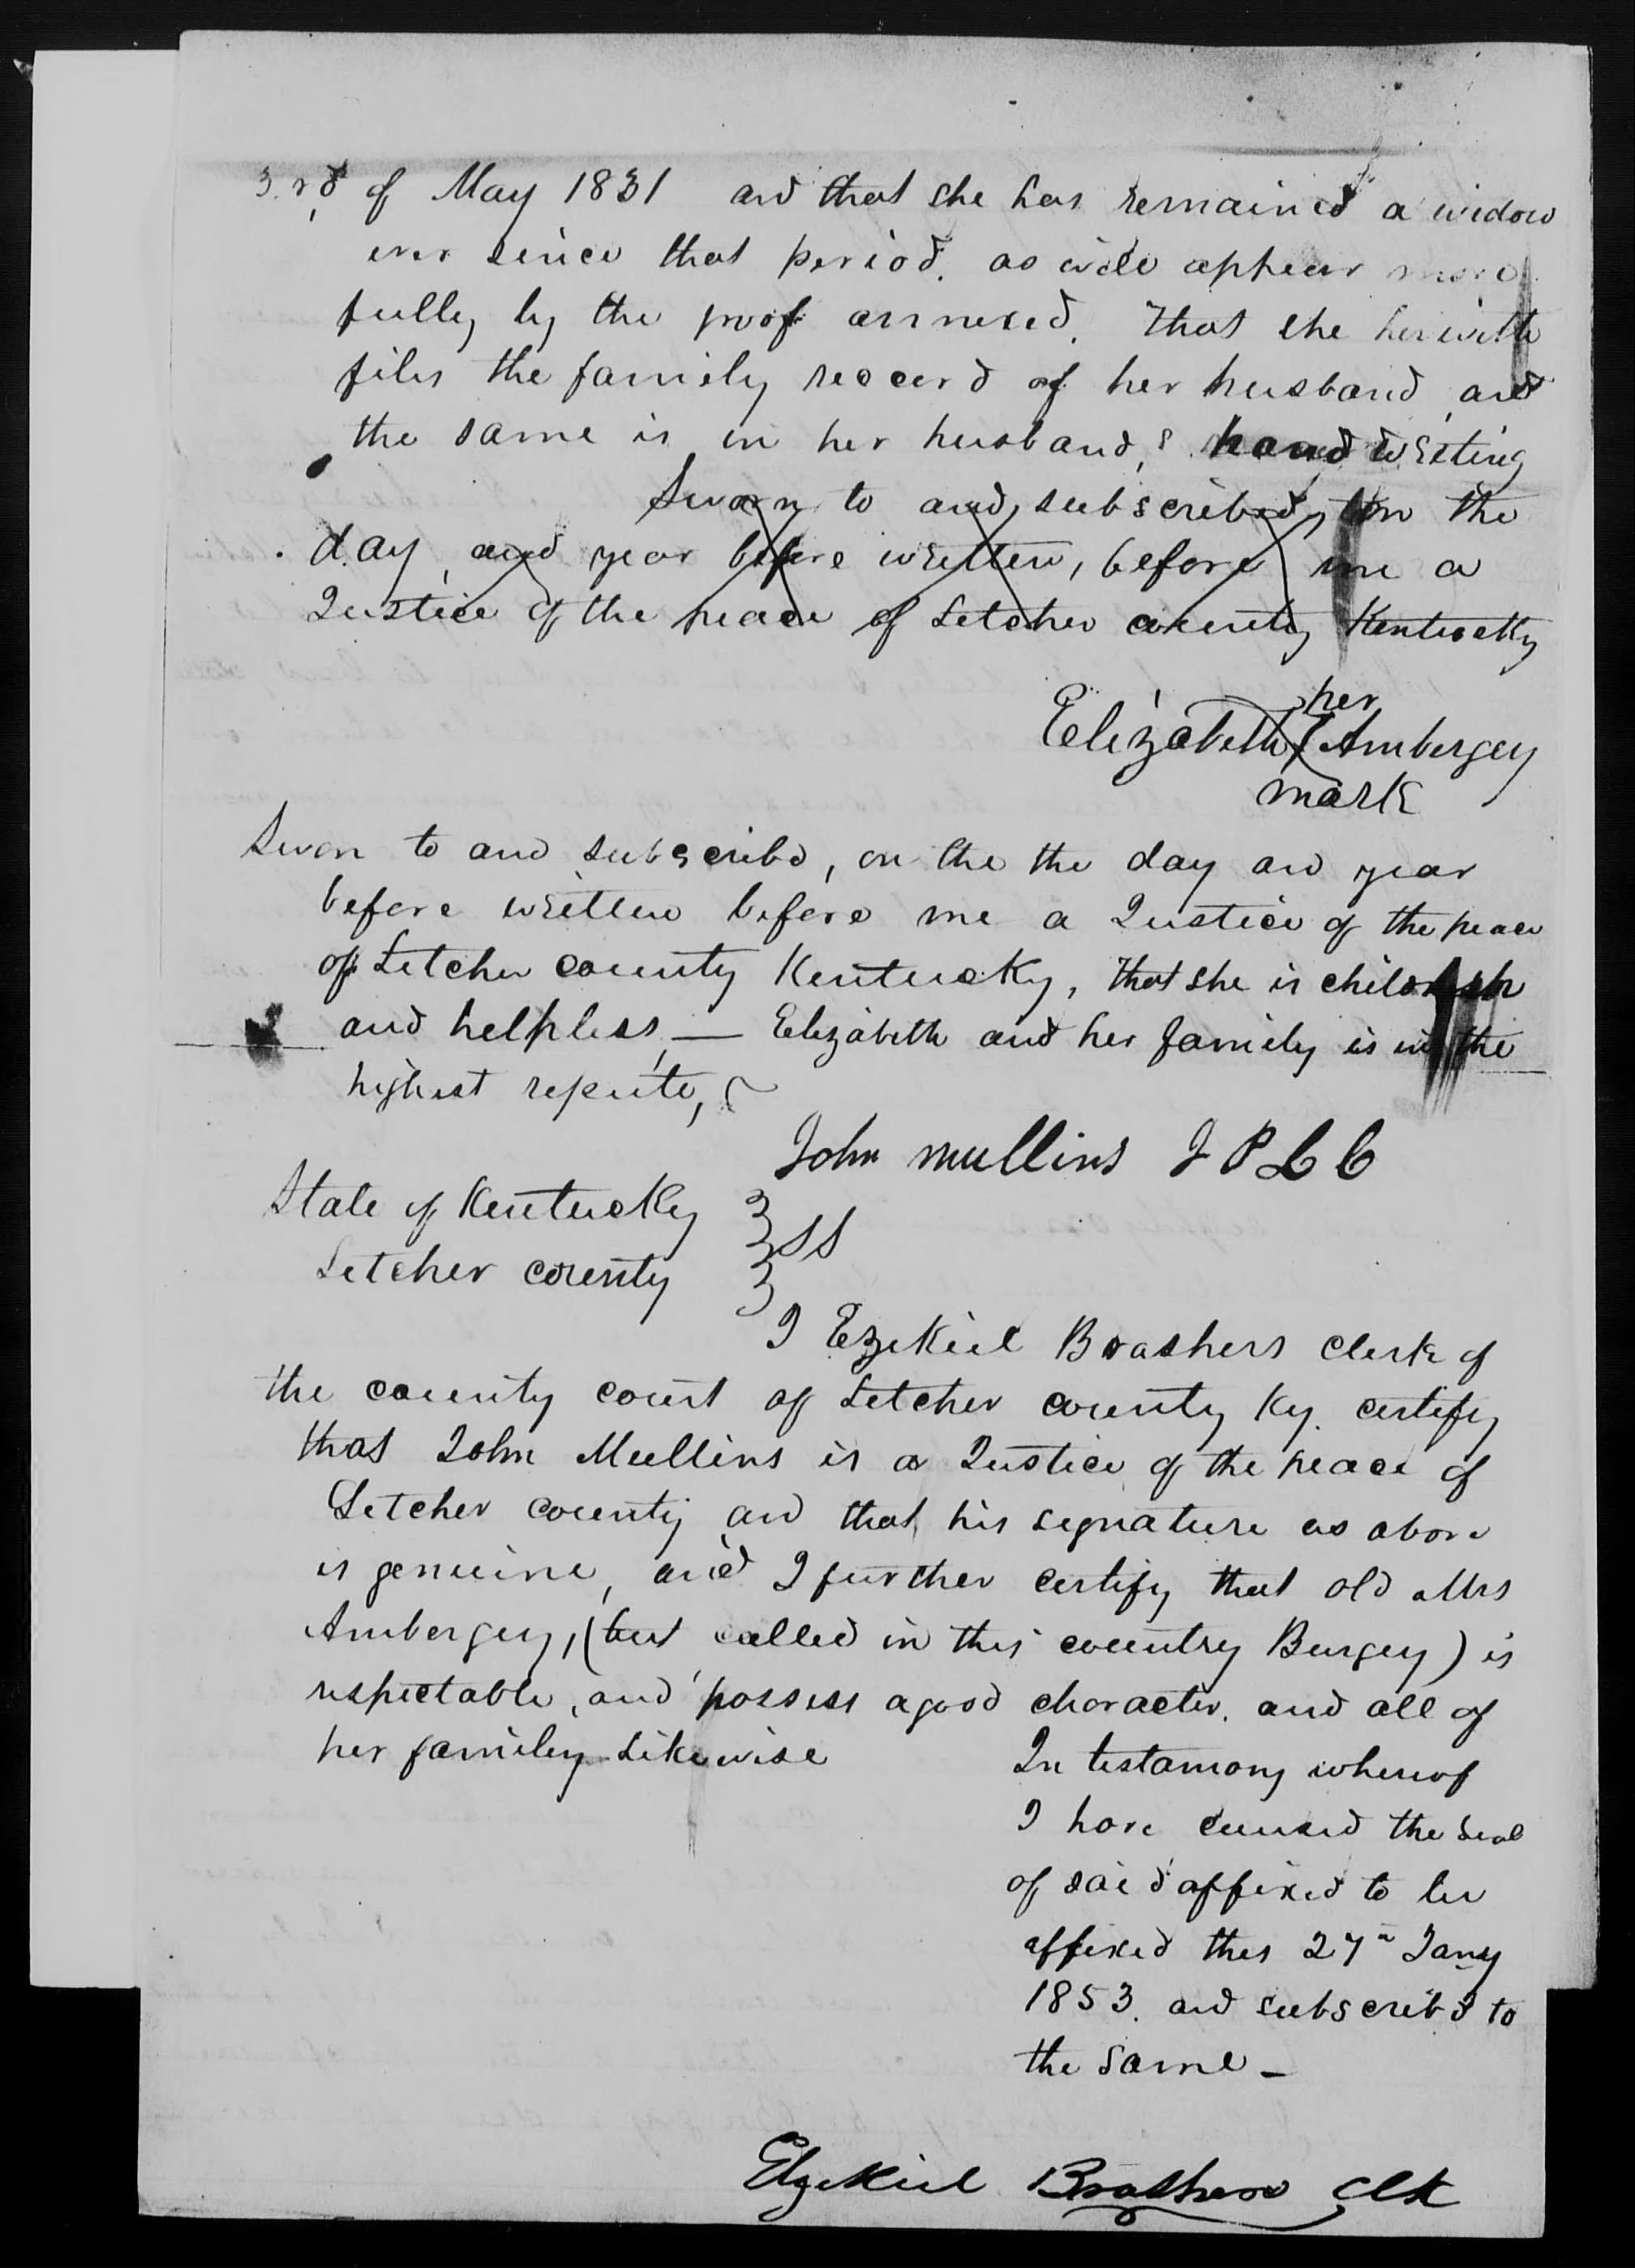 3.rd of May 1831 and that she has remained a widow
ever since that period. as will appear more
fully by the proof annexed. That she herewith
files the family reccord of her husband and
the same is in her husband,s hand writing
Sworn to and subscribed, on the
day and year before written, before me a
Justice of the peace of Letcher county Kentucky
her
Elizabeth X Ambergey
mark
Sworn to and subscribd, on the the day and year
before written before me a Justice of the peace
of Letcher county Kentucky, that she is childish
and helpless, — Elizabeth and her family is in the
highest repute,
John mullins J P L C
State of Kentucky
SS
Letcher county
I Ezekiel Brashers clerk of
the county court of Letcher county Ky. certify
that John Mullins is a Justice of the peace of
Letcher county and that his signature as above
is genuine, and I further certify that old Mrs
Ambergey, (but called in this country Burgey) is
respectable, and possess a good character. and all of
her family likewise
In testamony whereof
I have caused the seal
of said affixed to be
affixed this 27th Jany
1853. and subscribd to
the same –
Ezekiel Brashers Clk